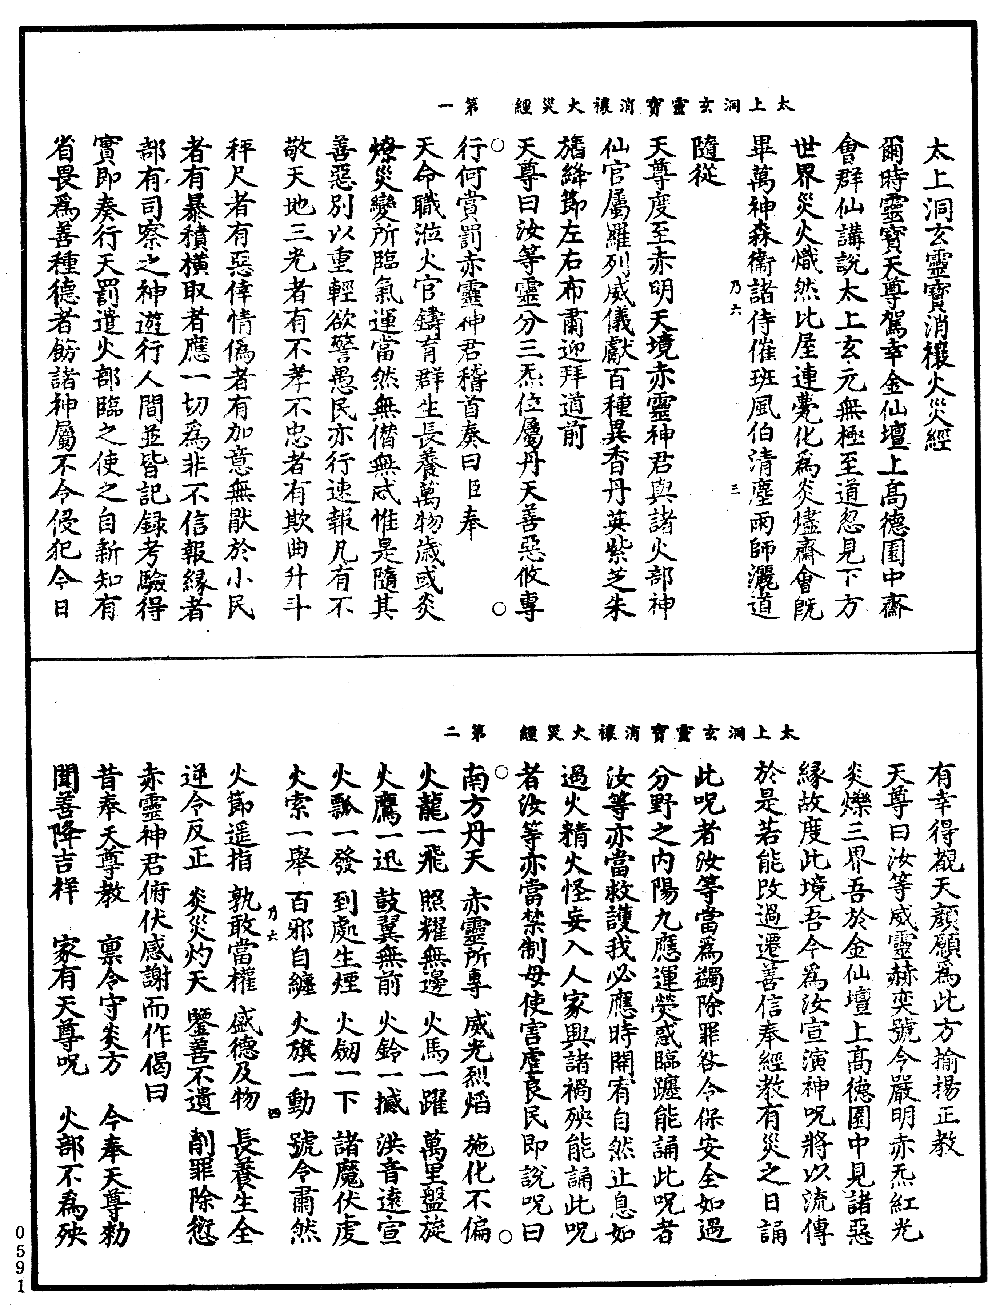 太上洞玄靈寶消禳火災經　第一
太上洞玄靈寶消禳火災經
爾時靈寶天尊駕幸金仙壇上高德園中齋
會群仙講說太上玄元無極至道忽見下方
世界災火熾然比屋連甍化為炎燼齋會既
畢萬神森衛諸侍催班風伯清塵雨師灑道
乃六　三
隨從
天尊度至赤明天境赤靈神君與諸火部神
仙官屬羅列威儀獻百種異香丹英紫芝朱
旛絳節左右布肅迎拜道前
天尊曰汝等靈分三炁位屬丹天善惡攸專
行何賞罰赤靈神君稽首奏曰臣奉
天命職涖火官鑄育群生長養萬物歲或炎
燎災變所臨氣運當然無僭無忒惟是隨其
善惡別以重輕欲警愚民亦行速報凡有不
敬天地三光者有不孝不忠者有欺曲升斗
秤尺者有惡倖情偽者有加意無猒於小民
者有暴積橫取者應一切為非不信報緣者
部有司察之神遊行人間並皆記錄考驗得
實即奏行天罰遣火部臨之使之自新知有
省畏為善種德者飭諸神屬不令侵犯今日
太上洞玄靈寶消禳火災經　第二
有幸得覩天顏願為此方揄揚正教
天尊曰汝等威靈赫奕號令嚴明赤炁紅光
炎爍三界吾於金仙壇上高德園中見諸惡
緣故度此境吾今為汝宣演神呪將以流傳
於是若能改過遷善信奉經教有災之日誦
此呪者汝等當為蠲除罪咎令保安全如過
分野之內陽九應運熒惑臨躔能誦此呪者
汝等亦當救護我必應時開宥自然止息如
過火精火怪妄入人家興諸禍殃能誦此呪
者汝等亦當禁制毋使害虐良民即說呪曰
南方丹天　赤靈所專　威光烈焰　施化不偏
火龍一飛　照耀無邊　火馬一躍　萬里盤旋
火鷹一迅　鼓翼無前　火鈴一撼　洪音遠宣
火瓢一發　到處生煙　火劒一下　諸魔伏虔
火索一舉　百邪自纏　火旗一動　號令肅然
乃六　四
火節遥指　孰敢當權　盛德及物　長養生全
逆令反正　炎災灼天　鑒善不遺　削罪除愆
赤靈神君俯伏感謝而作偈曰
昔奉天尊教　稟令守炎方　今奉天尊勑
聞善降吉祥　家有天尊呪　火部不為殃
0591